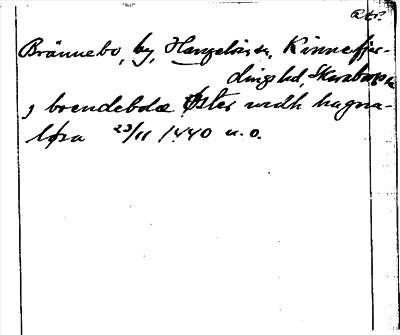 Brännebo, by, Hangelösa, Kinnefjer-
dings hd, Skarab.
j brendebolæ Øster widh hagna-
løsa 23/11 1440 u.o.